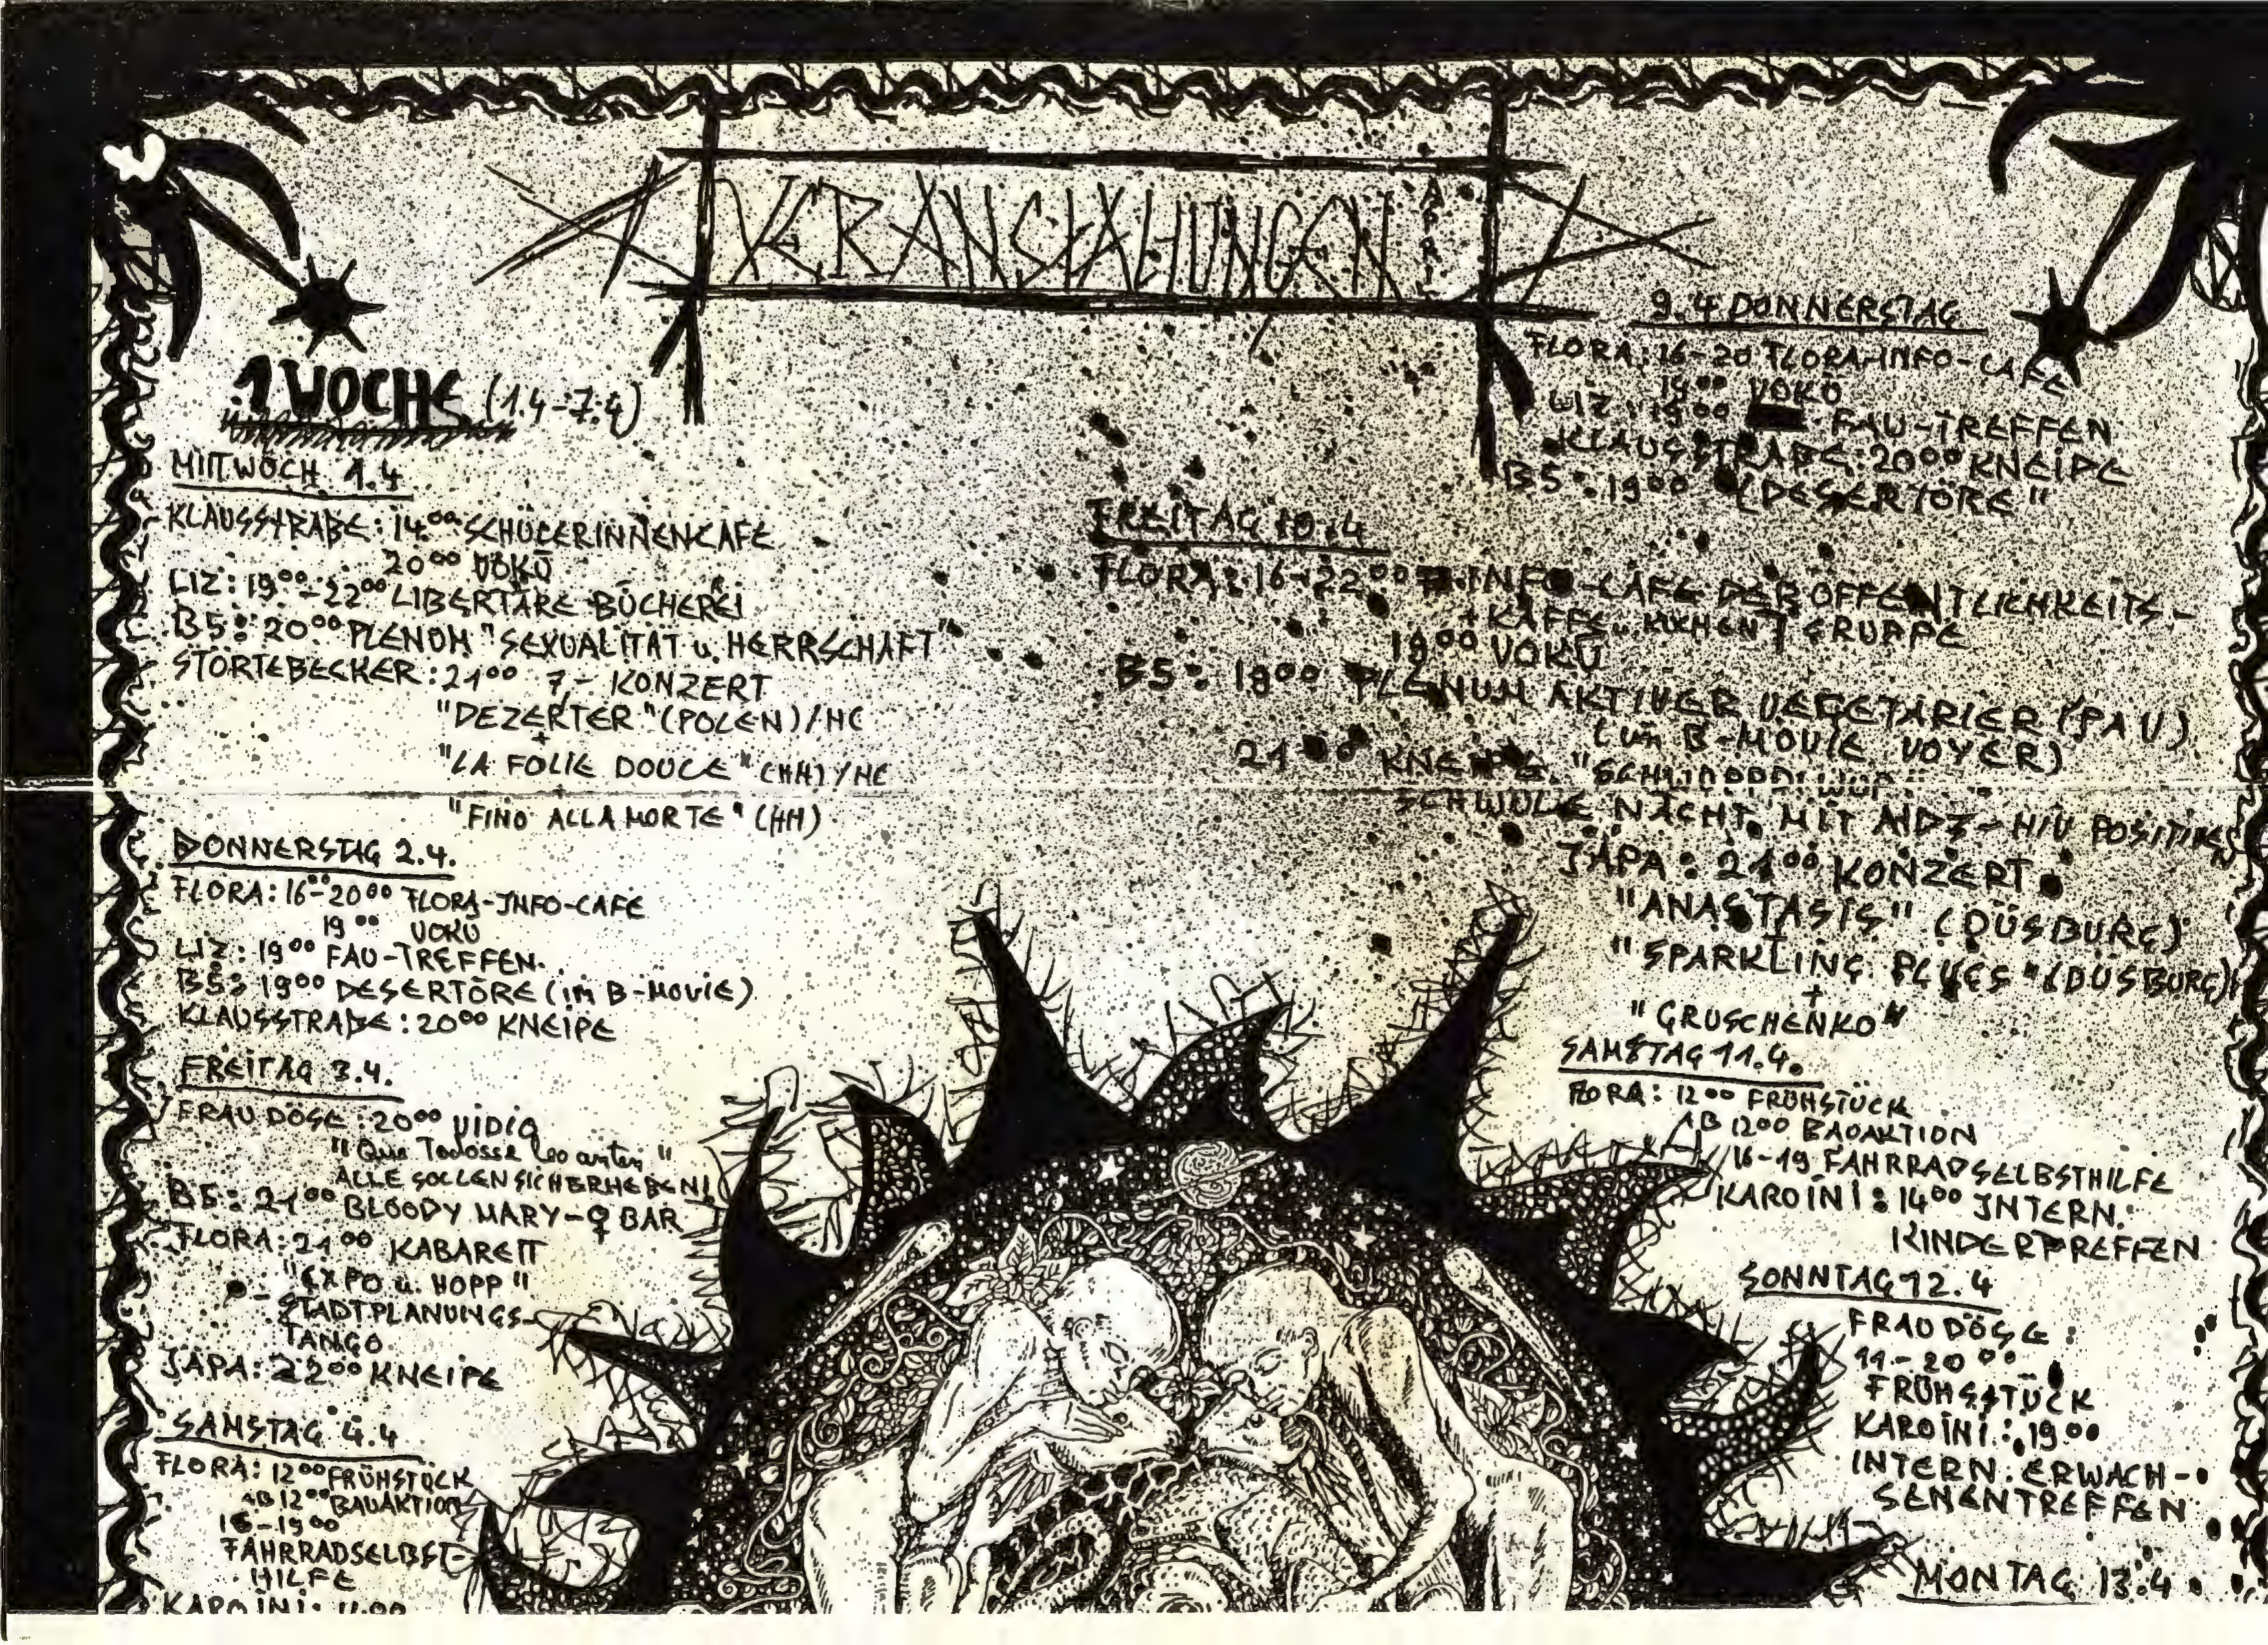 VERANSTALTUNGEN
APRIL
1 WOCHE (1.4-7.4)
MITTWOCH 1.4
KLAUSSTRAßE: 14°° SCHÜLERINNENCAFE
20°° VOKÜ
LIZ: 19°°-22°° LIBERTÄRE BÜCHEREI
B5: 20°° PLENUM "SEXUALITÄT u. HERRSCHAFT"
STÖRTEBECKER: 21°° 7,- KONZERT
"DEZERTER" (POLEN)/HC
+
"LA FOLIE DOUCE" (HH)/HC
+
"FINO ALLA MORTE" (HH)
DONNERSTAG 2.4.
FLORA: 16°°-20°° FLORA-INFO-CAFE
19°° VOKÜ
LIZ: 19°° FAU-TREFFEN.
B5: 19°° DESERTÖRE (im B-MOVIE)
KLAUSSTRAßE: 20°° KNEIPE
FREITAG 3.4.
FRAU DÖSE: 20°° VIDIO
"Que
ALLE SOLLEN SICH ERHEBEN!
B5: 21°° BLOODY MARY-♀ BAR
FLORA: 21°° KABARETT
"EXPO u. HOPP"
- STADTPLANUNGS-
TANGO
JÄPA: 22°° KNEIPE
SAMSTAG 4.4
FLORA: 12°° FRÜHSTÜCK
AB 12°° BAUAKTION
16-19°°
FAHRRADSELBST-
HILFE
KAROINI:
9.4 DONNERSTAG
FLORA: 16-20 FLORA-INFO-CAFE
19°° VOKÜ
LIZ: 19°° FAU-TREFFEN
KLAUSSTRAßE: 20°° KNEIPE
B5: 19°° "DESERTÖRE"
FREITAG 10.4
FLORA: 16-22°° INFO-CAFE DER ÖFFENTLICHKEITS-
+ KAFFE u. KUCHEN GRUPPE
19°° VOKÜ
B5: 19°° PLENUM AKTIVER VEGETARIER (PAV)
(im B-MOVIE VOYER)
21°° KNEIPE
SCHWULE NACHT MIT AIDZ-HIV POSITIVEN
JÄPA: 21°° KONZERT
"ANASTASIS" (DÜSBURG)
+
"SPARKLING PLUGS" (DÜSBURG)
+
"GRUSCHENKO"
SAMSTAG 11.4.
FLORA: 12°° FRÜHSTÜCK
AB 1200 BAUAKTION
16-19 FAHRRADSELBSTHILFE
KAROINI: 14°° INTERN.
KINDERTREFFEN
SONNTAG 12.4
FRAU DÖSE:
11-20°°
FRÜHSSTÜCK
KAROINI: 19°°
INTERN. ERWACH-
SENENTREFFEN
MONTAG 13.4